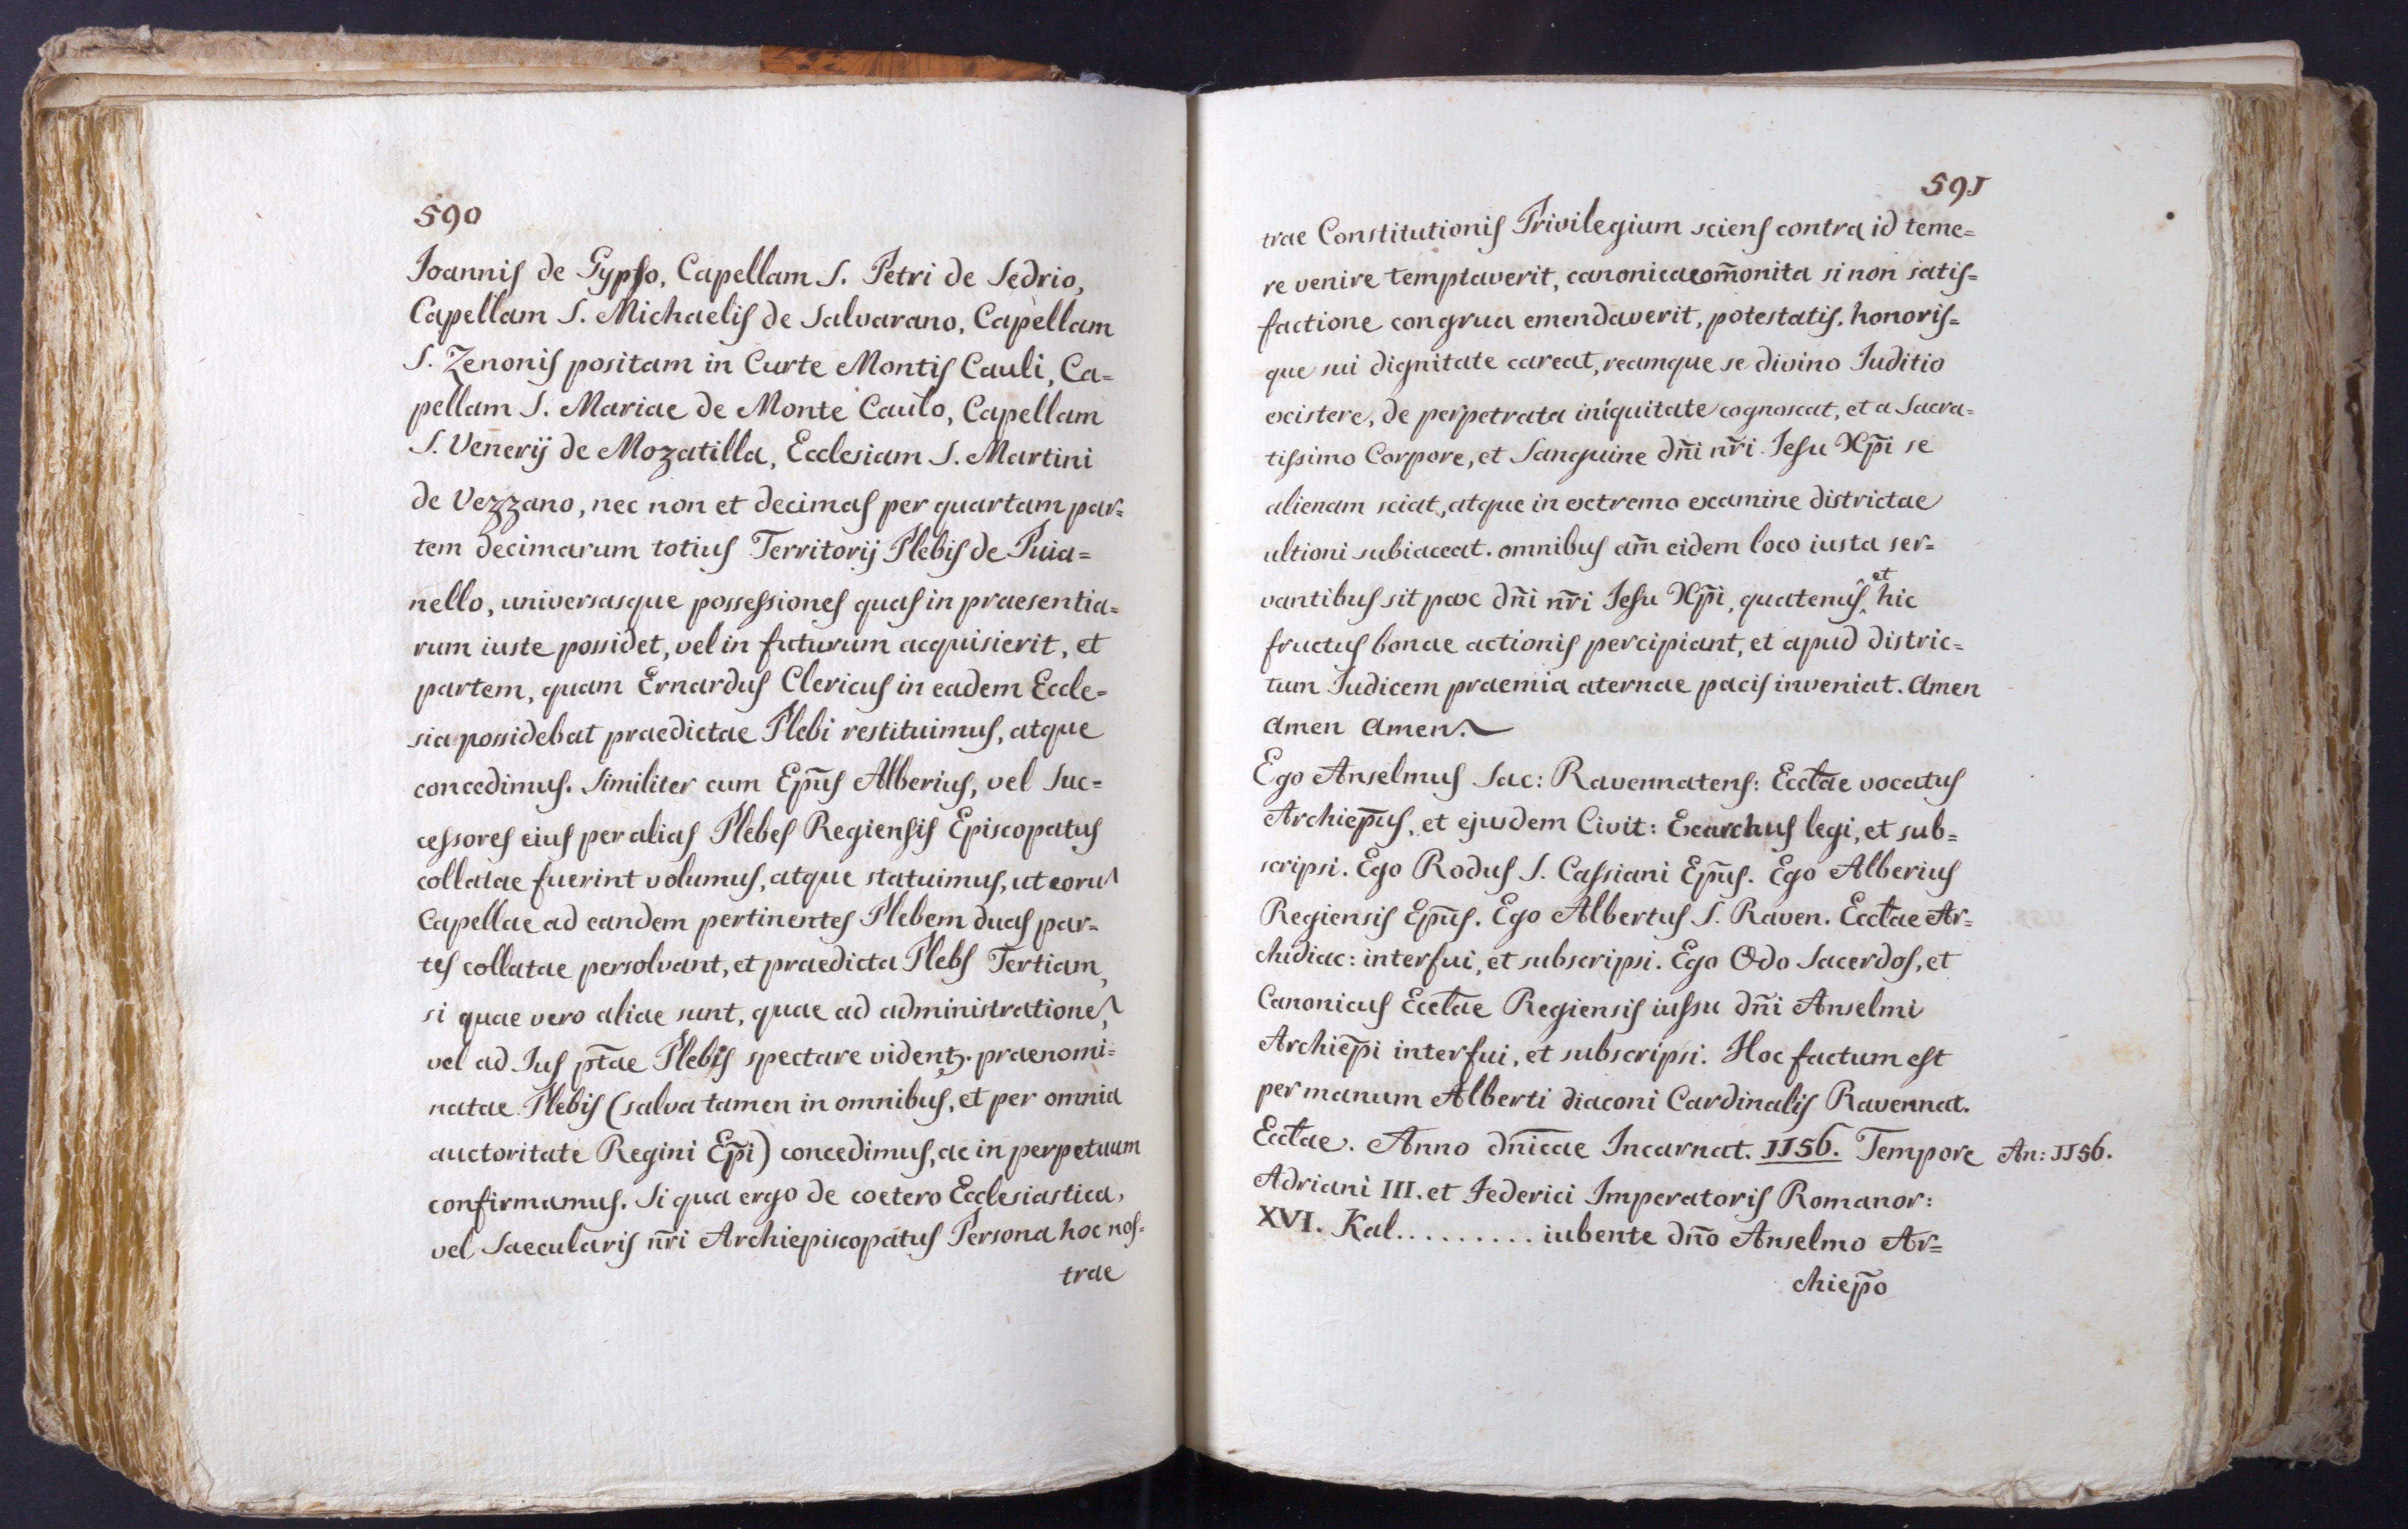 590
Joannis de Gypso, Capellam S. Petri de Sedrio,
Capellam S. Michaelis de Salvarano, Capellam
S. Zenonis positam in Curte Montis Cauli, Ca=
pellam S. Mariae de Monte Caulo, Capellam
S. Venerij de Mozatilla, Ecclesiam S. Martini
de Vezzano, nec non et decimas per quartam par=
tem decimarum totius Territorij Plebis de Puia=
nello, universasque possessiones quas in praesentia=
rum iuste possidet, vel in futurum acquisierit, et
partem, quam Ernardus Clericus in eadem Eccle=
sia possidebat praedictae Plebi restituimus, atque
concedimus. Similiter cum Ep̄us Alberius, vel Suc=
cessores eius per alias Plebes Regiensis Episcopatus
collatae fuerint volumus, atque statuimus, ut eorū
Capellae ad eandem pertinentes Plebem duas par=
tes collatae persolvant, et praedicta Plebs Tertiam,
si quae vero aliae sunt, quae ad administrationē,
vel ad Jus p̄tae Plebis spectare videntꝫ. praenomi=
natae Plebis (salva tamen in omnibus, et per omnia
auctoritate Regini Ep̄i) concedimus, ac in perpetuum
confirmamus. Si qua ergo de coetero Ecclesiastica,
vel Saecularis nr̄i Archiepiscopatus Persona hoc nos=
trae
591
trae Constitutionis Privilegium sciens contra id teme=
re venire templaverit, canonicacom̄onita si non satis=
factione congrua emendaverit, potestatis, honoris=
que sui dignitate careat, reamque se divino Iuditio
existere, de perpetrata iniquitate cognoscat, et a Sacra=
tissimo Corpore, et Sanguine dn̄i nr̄i Iesu Xp̄i se
alienam sciat, atque in extremo examine districtae
ultioni subiaceat. omnibus am̄ eidem loco iusta ser=
vantibus sit pax dn̄i nr̄i Iesu Xp̄i, quatenus ^et hic
fructus bonae actionis percipiant, et apud distric=
tum Iudicem praemia aternae pacis inveniat. Amen
Amen Amen.
Ego Anselmus Sac: Ravennatens: Eccłae vocatus
Archiep̄us, et ejusdem Civit: Exarchus legi, et sub=
scripsi. Ego Rodus S. Cassiani Ep̄us. Ego Alberius
Regiensis Ep̄us. Ego Albertus S. Raven. Eccłae Ar=
chidiac: interfui, et subscripsi. Ego Odo Sacerdos, et
Canonicus Eccłae Regiensis iussu dn̄i Anselmi
Archiep̄i interfui, et subscripsi. Hoc factum est
per manum Alberti diaconi Cardinalis Ravennat.
Eccłae. Anno dn̄icae Incarnat. 1156. Tempore
An: 1156.
Adriani III. et Federici Imperatoris Romanor:
XVI. Kal......... iubente dn̄o Anselmo Ar=
chiep̄o